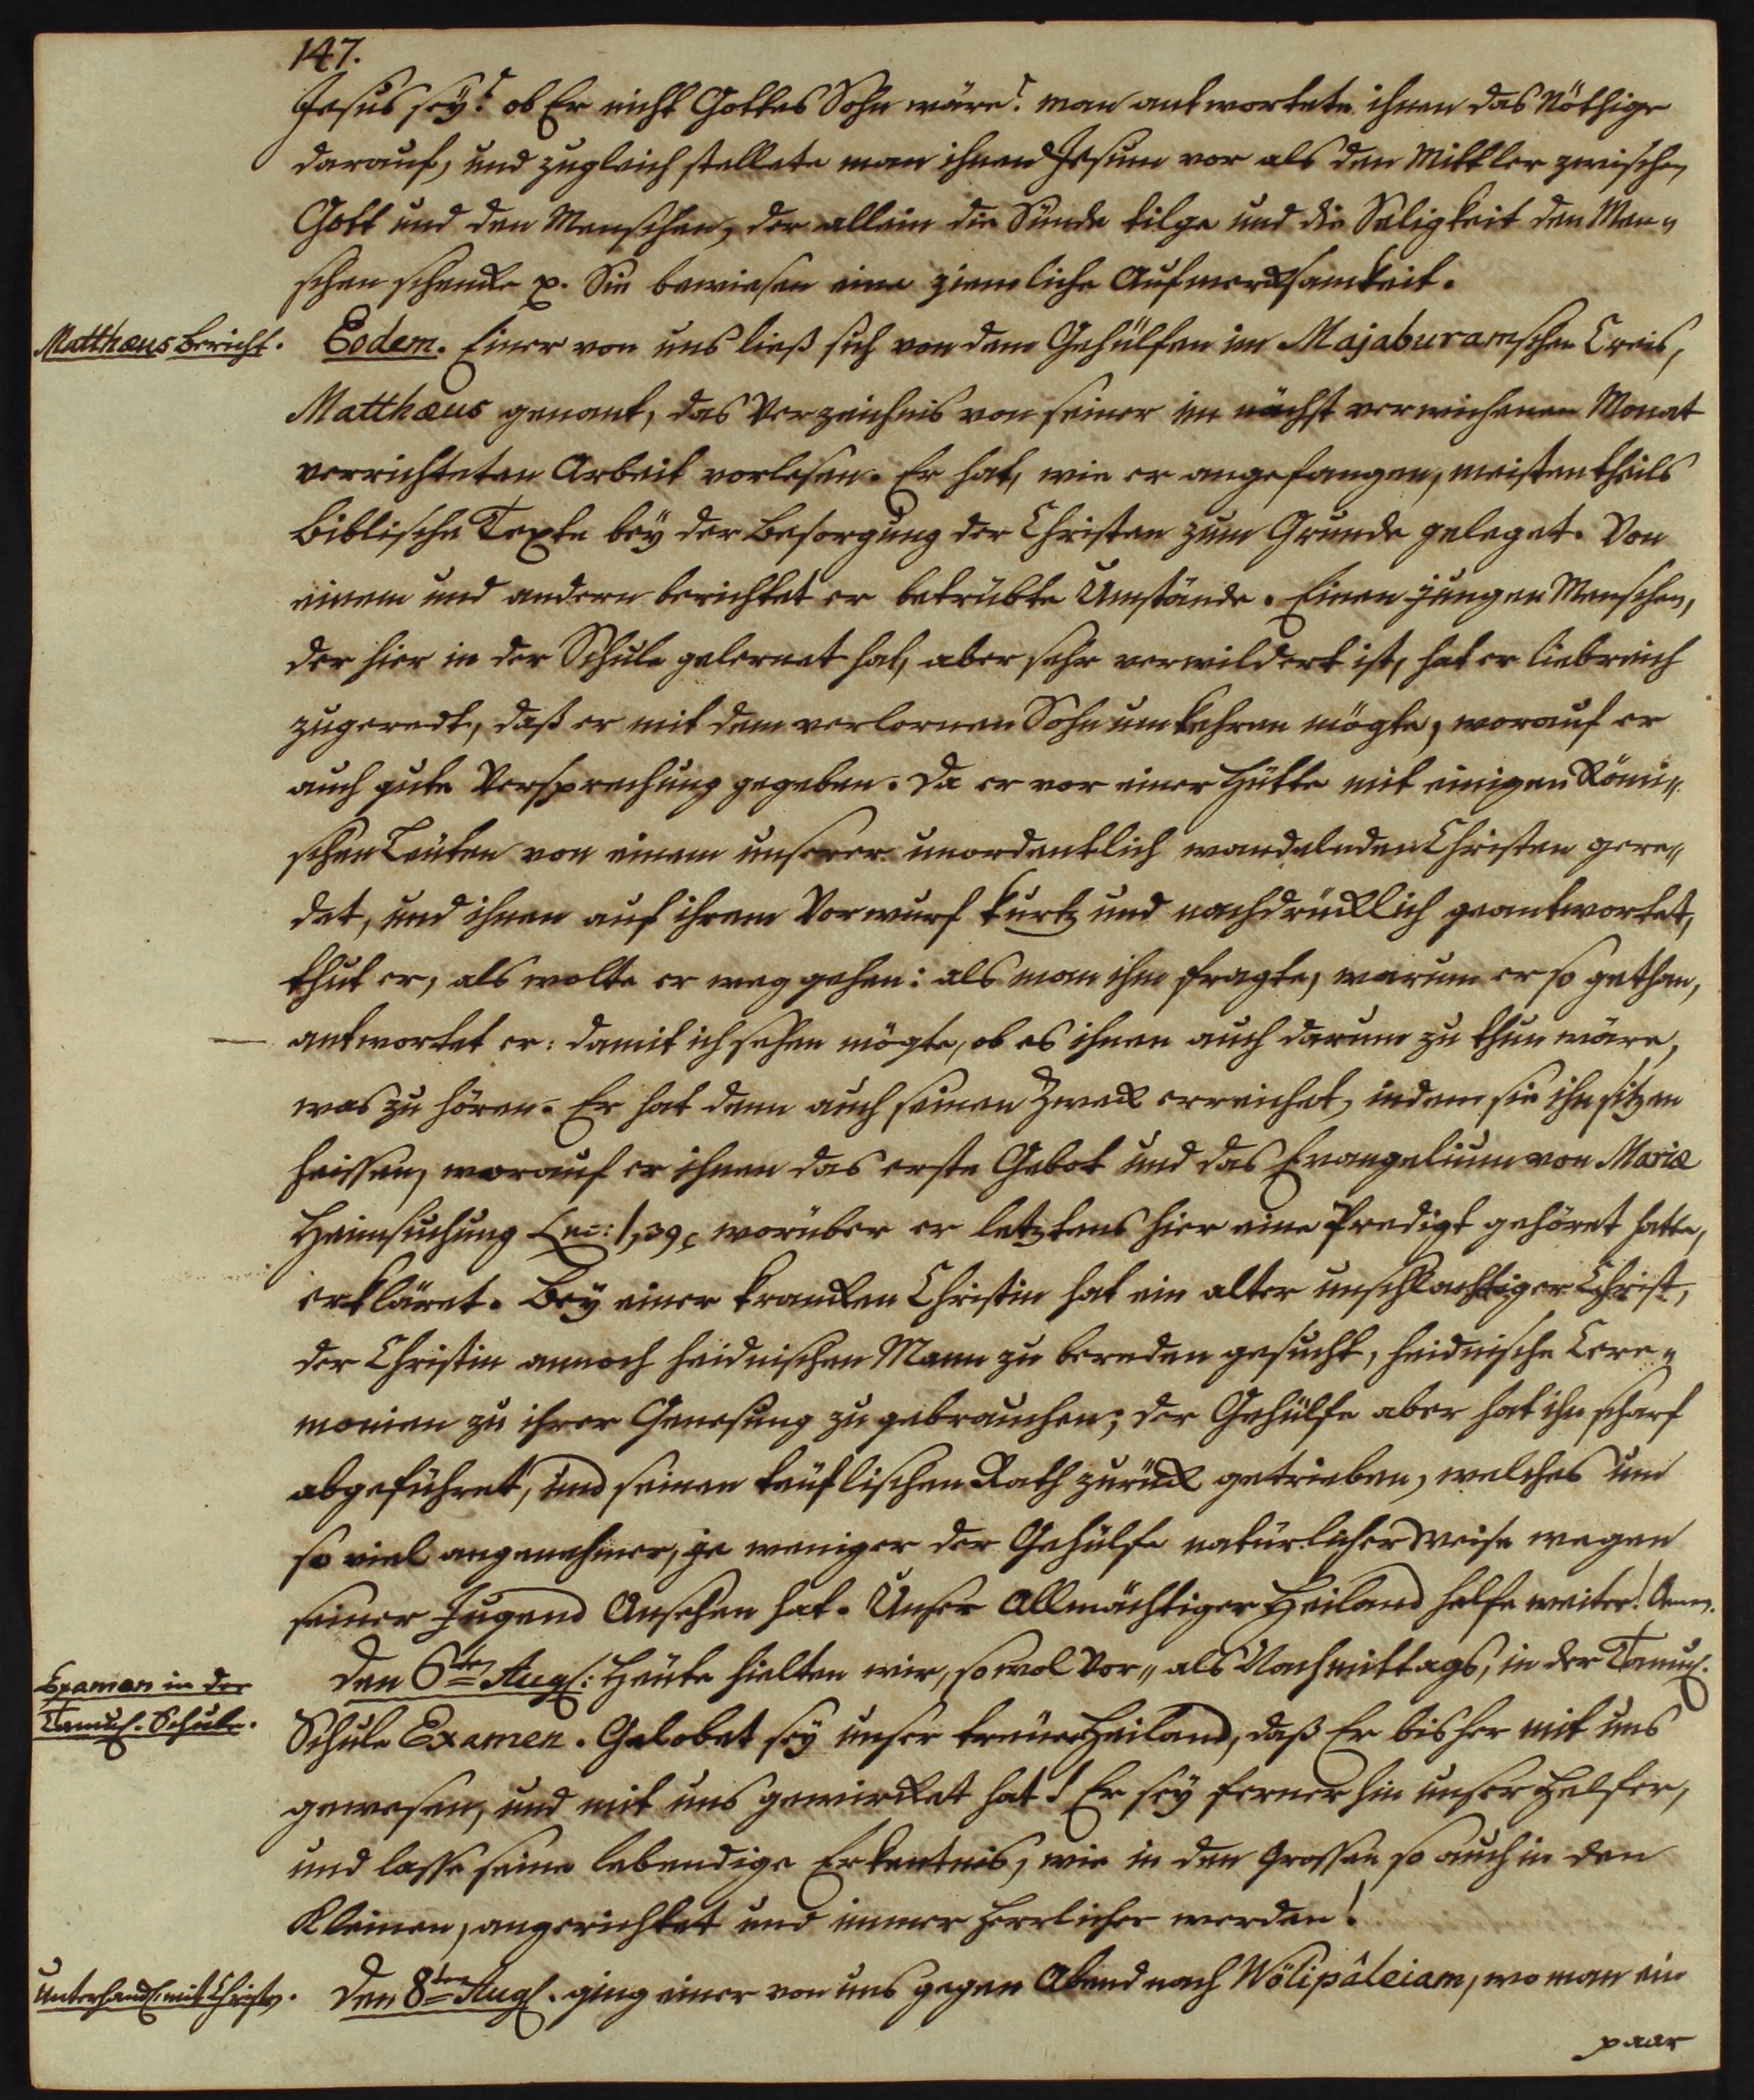 147.
Jesus sey? ob Er nicht Gottes Sohn wäre? man antwortete ihnen das Nöthige
darauf, und zugleich stellete man ihnen Jesum vor als den Mittler zwischen
Gott und den Menschen, der allein die Sünde tilge und die Seligkeit den Men„
schen schencke p. Sie bewiesen eine ziemliche Aufmercksamkeit.
Matthæus Bericht.
Eodem. Einer von uns ließ sich von dem Gehülfen im Majaburamschen Creis,
Matthæus genant, das Verzeichnis von seiner im nächst verwichenen Monat
verrichteten Arbeit vorlesen. Er hat, wie er angefangen, meistentheils
Biblische Texte bey der Besorgung der Christen zum Grunde geleget. Von
einem und andern berichtet er betrübte Umstände. Einen jungen Menschen,
der hier in der Schule gelernet hat, aber sehr verwildert ist, hat er liebreich
zugeredt, daß er mit dem verlornen Sohn umkehren mögte, worauf er
auch gute Versprechung gegeben. Da er vor einer Hütte mit einigen Römi„
schen Leuten von einem unserer unordentlich wandelnden Christen gere„
det, und ihnen auf ihrem Vorwurf kurtz und nachdrücklich geantwortet,
thut er, als wolte er weg gehen: als man ihm fragte, warum er so gethan,
antwortet er: damit ich sehen mögte, ob es ihnen auch darum zu thun wäre,
was zu hören. Er hat denn auch seinen Zweck erreichet, indem sie ihn sitzen
heissen, worauf er ihnen das erste Gebot und das Evangelium von Mariæ
Heimsuchung Luc: 1, 39 worüber er letztens hier eine Predigt gehöret hatte,
erkläret. Bey einer krancken Christin hat ein alter unschlachtiger Christ,
der Christin annoch heidnischen Mann zu bereden gesucht, heidnische Cere„
monien zu ihrer Genesung zu gebrauchen; der Gehülfe aber hat ihn scharf
abgeführet, und seinen teuflischen Rath zurück getrieben, welches um
so viel angenehmer, je weniger der Gehülfe natürlicher Weise wegen
seiner Jugend Ansehen hat. Unser Allmächtiger Heiland helfe weiter! Amen.
Examen in der
Tamul. Schule.
Den 6ten Aug: Heute hielten wir, sowol Vor„ als Nachmittags, in der Tamul.
Schule Examen. Gelobet sey unser treuer Heiland, daß Er bisher mit uns
gewesen, und mit uns gewircket hat! Er sey ferner hin unser Helfer,
und lasse seine lebendige Erkentnis, wie in den Grossen, so auch in den
Kleinen, angerichtet und immer herrlicher werden!
Unterhand. mit Christen.
Den 8ten Aug. ging einer von uns gegen Abend nach Wölipâleiam, wo man ein
paar